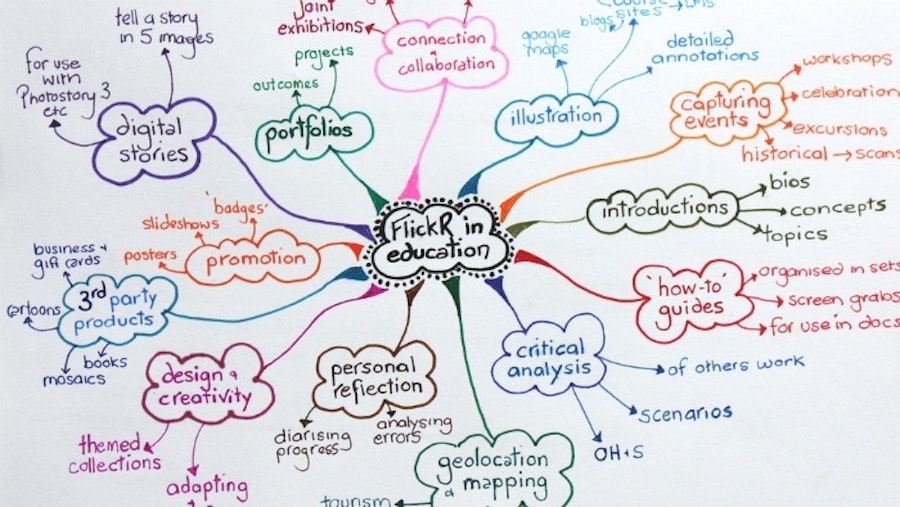 tell a story
in 5 images
for use
with
Photostory 3
etc
digital
stories
joint
exhibitions
projects
outcomes
portfolios
connection
&
collaboration
google
maps
blogs
sites → LMS
detailed
annotations
illustration
capturing
events
workshops
celebration
excursions
historical → scans
introductions
bios
concepts
topics
FlickR in
education
'badges'
slideshows
posters
promotion
business +
gift cards
cartoons
3rd party
products
books
mosaics
'how-to'
guides
organised in sets
screen grabs
for use in docs
critical
analysis
of others work
scenarios
OH+S
personal
reflection
diarising
progress
analysing
errors
design &
creativity
themed
collections
adapting
geolocation
& mapping
tourism